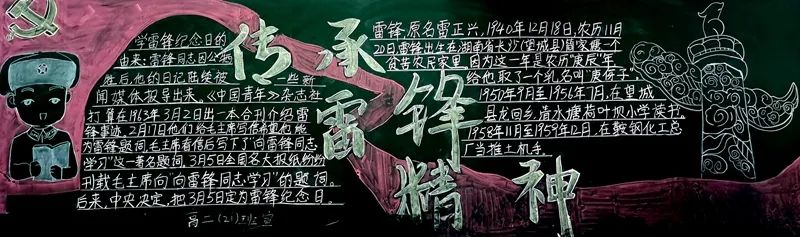 学雷锋纪念日的
由来:雷锋同志因公牺
牲后,他的日记陆续被一些新
闻媒体报导出来。《中国青年》杂志社
打算在1963年3月2日出一本合刊介绍雷
锋事迹。2月17日他们给毛主席写信希望他能
为雷锋题词.毛主席看信后写下了“向雷锋同志
学习”这一著名题词。3月5日全国各大报纸纷纷
刊载毛主席向“向雷锋同志学习”的题词。
后来,中央决定,把3月5日定为雷锋纪念日。
高二(21)班宣
传承
雷锋
精神
雷锋,原名雷正兴,1940年12月18日,农历11月
20日,雷锋出生在湖南省长沙(望城县)皆家一个
贫苦农民家里,因为这一年是农历“庚辰”年
给他取了一个乳名叫“庚伢子”
1950年9月至1956年7月,在望城
县龙回乡,清水塘荷叶坝小学读书。
1958年11月至1959年12月,在鞍钢化工总
厂当推土机手